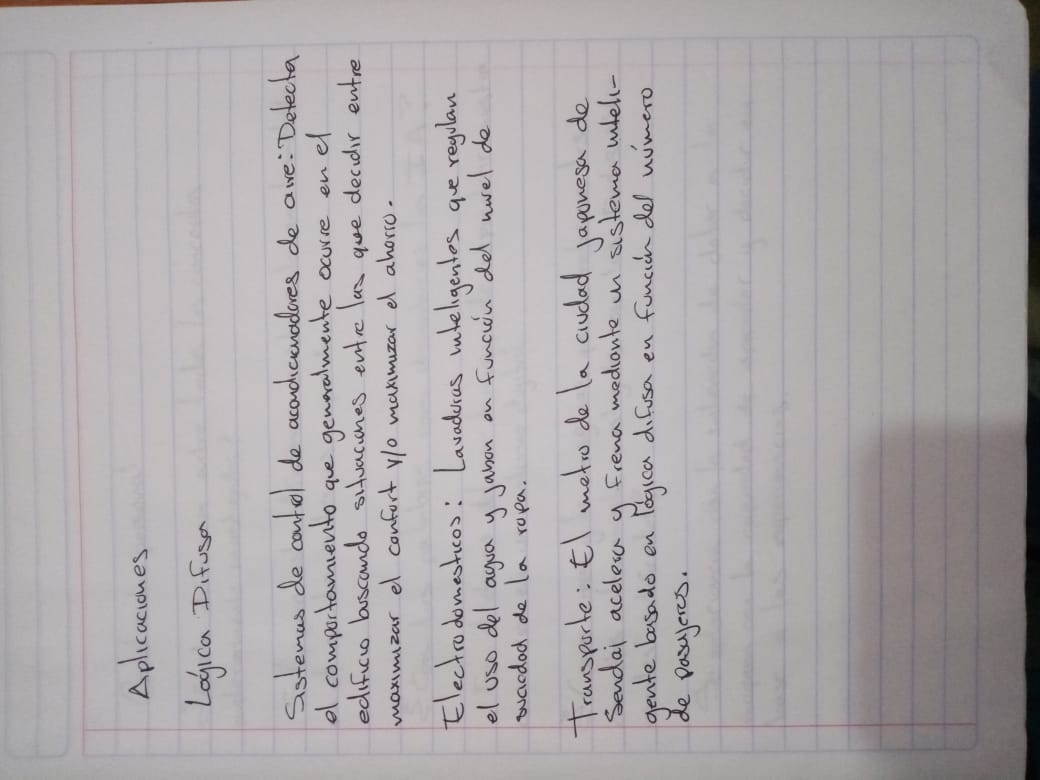 Aplicaciones
Lógica Difusa
Sistemas de control de acondicionadores de aire: Detecta
el comportamiento que generalmente ocurre en el
edificio buscando situaciones entre las que decidir entre
maximizar el confort y/o maximizar el ahorro.
Electrodomesticos: Lavadoras inteligentes que regulan
el uso del agua y jabon en función del nivel de
suciedad de la ropa.
Transporte: El metro de la ciudad japonesa de
Sendai acelera y frena mediante un sistema inteli-
gente basado en lógica difusa en función del número
de pasajeros.